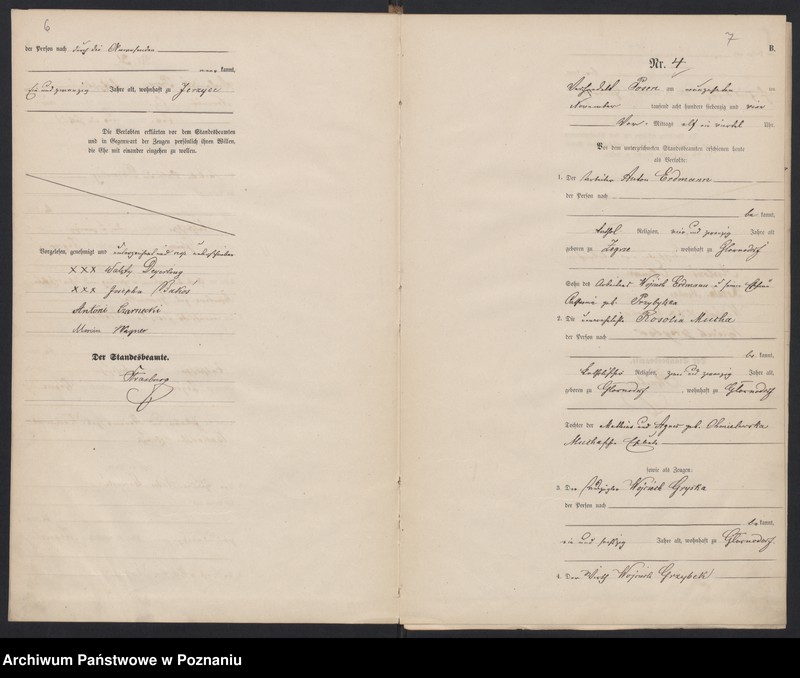 6
der Person nach durch die Anwesenden
kannt,
Ein und zwanzig Jahre alt, wohnhaft zu Jerzyce
Die Verlobten erklärten vor dem Standesbeamten
und in Gegenwart der Zeugen persönlich ihren Willen,
die Ehe mit einander eingehen zu wollen.
Vorgelesen, genehmigt und
XXX
XXX Josepha
Antoni Czarnecki
Wagner
Der Standesbeamte.
7
B.
Nr. 4
Posen am neunzehnten
November tausend acht hundert siebenzig und vier
Vor Mittags elf ein viertel Uhr.
Vor dem unterzeichneten Standesbeamten erschienen heute
als Verlobte:
1. Der Arbeiter Anton Erdmann
der Person nach
be kannt,
kathol. Religion, vier und zwanzig Jahre alt
geboren zu , wohnhaft zu
Sohn des Arbeiters Wojciech Erdmann u seiner Ehefrau
geb. Przybylska
2. Die unverehelichte Rosalia Mucha
der Person nach
be kannt,
katholischer Religion, zwei und zwanzig Jahre alt,
geboren zu , wohnhaft zu
Tochter der Mathias und Agnes geb. Chmielewska
Muchaschen Eheleute
sowie als Zeugen:
3. Der Wojciech Gryska
der Person nach
be kannt,
und Jahre alt, wohnhaft zu
4. Der Wirth Wojciech Grzybek
Archiwum Państwowe w Poznaniu